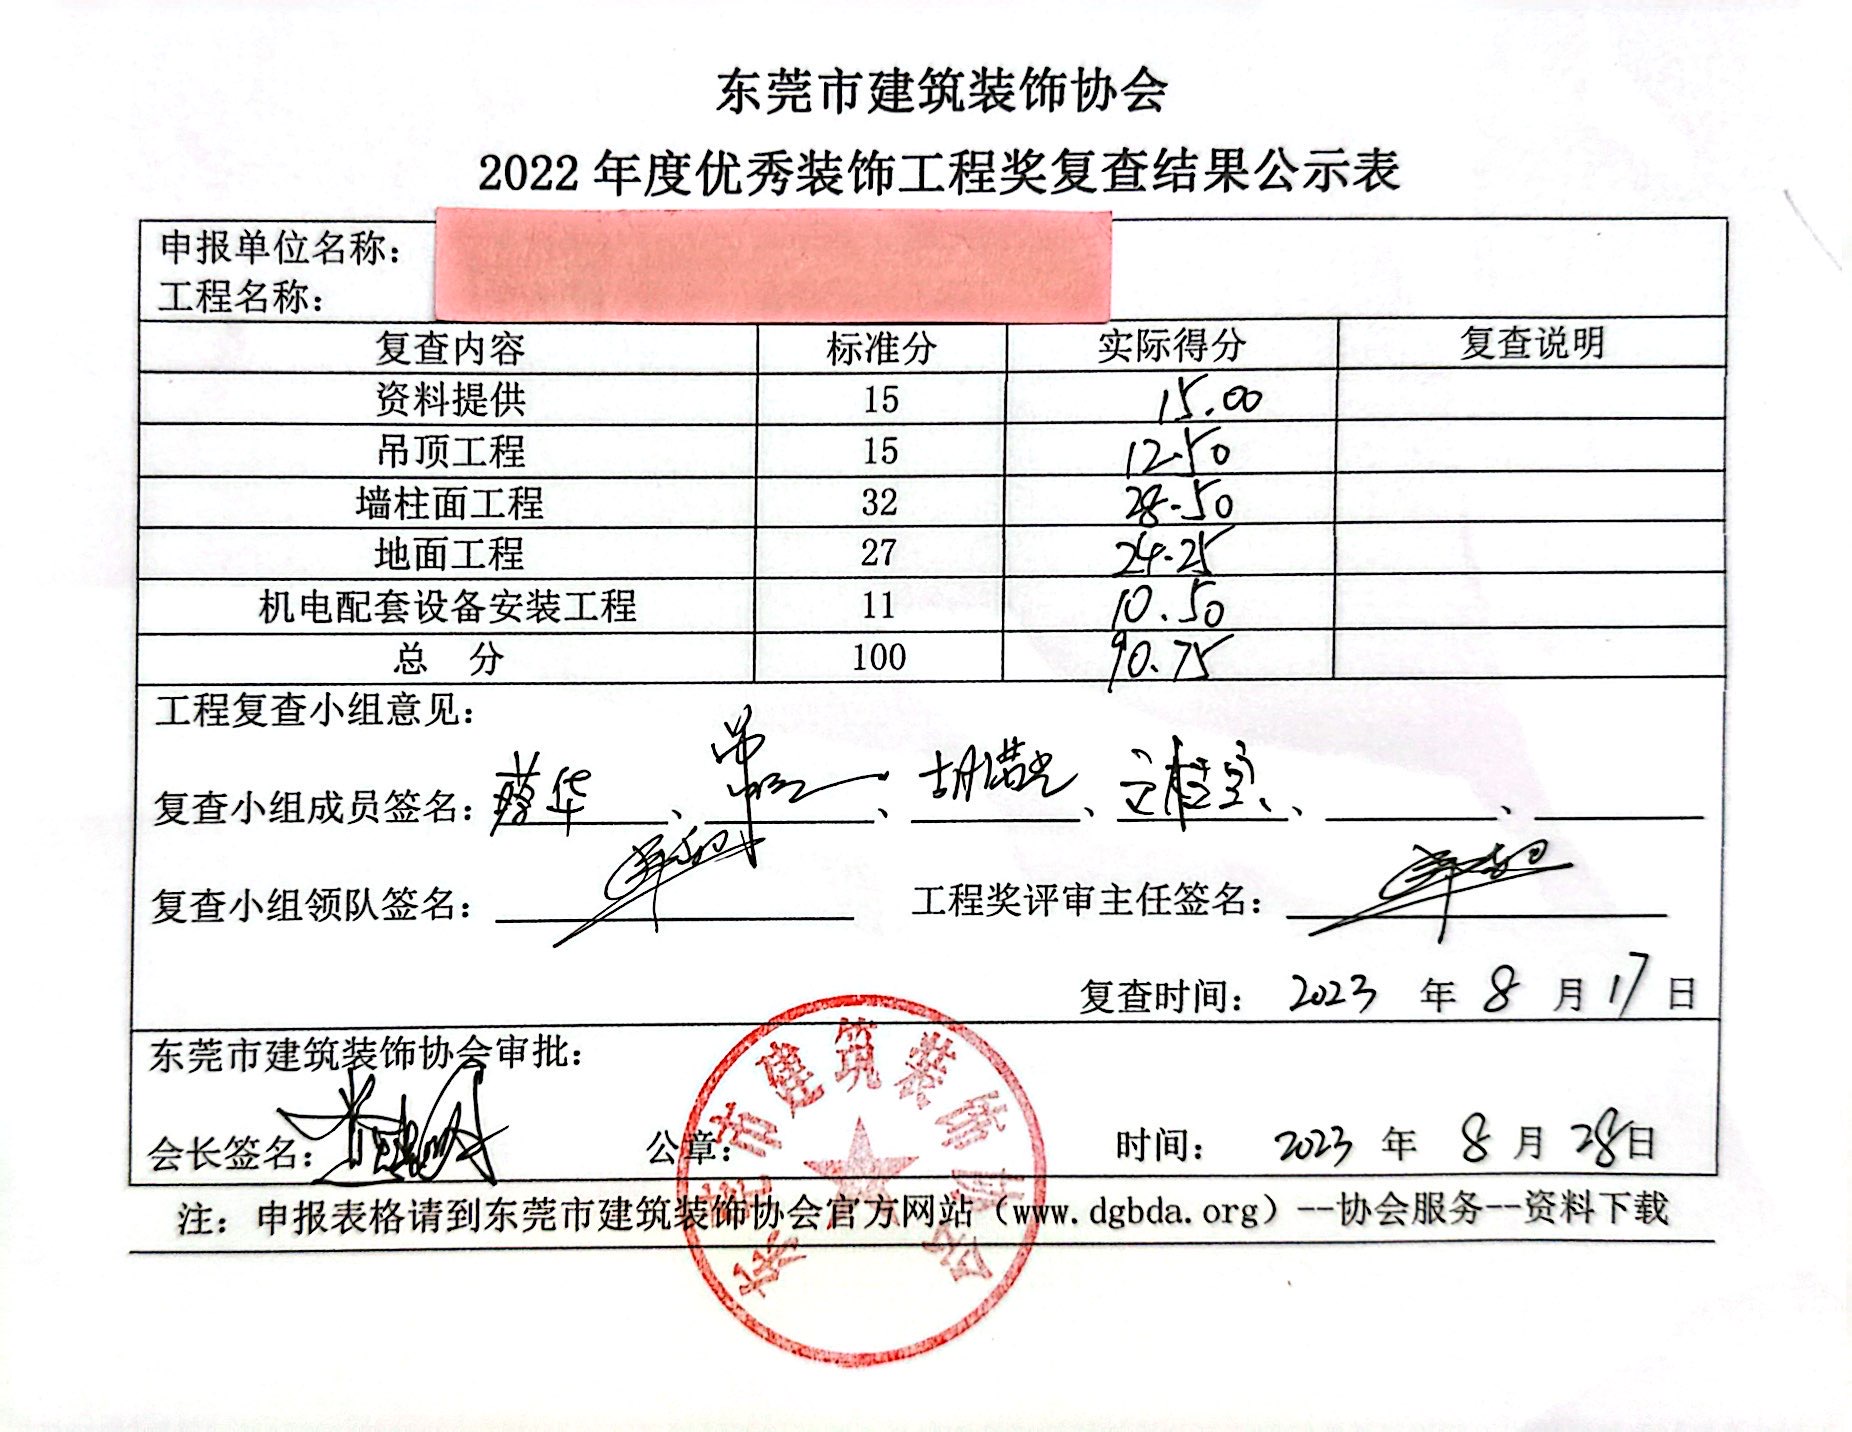 东莞市建筑装饰协会
2022 年度优秀装饰工程奖复查结果公示表
申报单位名称：
工程名称：
复查内容 标准分 实际得分 复查说明
资料提供 15 15.00
吊顶工程 15 12.50
墙柱面工程 32 28.50
地面工程 27 24.25
机电配套设备安装工程 11 10.50
总 分 100 90.75
工程复查小组意见：
复查小组成员签名：蔡华、、胡浩光、文桂宝、、
复查小组领队签名： 工程奖评审主任签名：
复查时间： 2023 年 8 月 17 日
东莞市建筑装饰协会审批：
会长签名： 公章： 时间： 2023 年 8 月 28 日
东莞市建筑装饰协会
注：申报表格请到东莞市建筑装饰协会官方网站（www.dgbda.org）--协会服务--资料下载